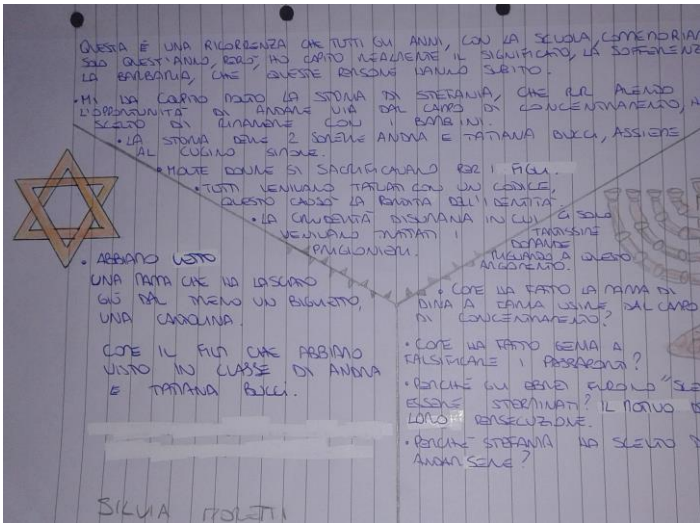 QUESTA È UNA RICORRENZA CHE TUTTI GLI ANNI, CON LA SCUOLA,
SOLO QUEST'ANNO, PERÒ, HO CAPITO REALMENTE IL SIGNIFICATO, LA
LA BARBARIA, CHE QUESTE PERSONE HANNO SUBITO.
• MI HA COLPITO MOLTO LA STORIA DI STEFANIA, CHE PUR AVENDO
L'OPPORTUNITÀ DI ANDARE VIA DAL CAMPO DI CONCENTRAMENTO,
SCELTO DI RIMANERE CON I BAMBINI.
• LA STORIA DELLE 2 SORELLE ANDRA E TATIANA BUCCI, ASSIEME
AL CUGINO SIMONE.
• MOLTE DONNE SI SACRIFICAVANO PER I FIGLI.
• TUTTI VENIVANO TATUATI CON UN CODICE,
QUESTO CAUSÒ LA PERDITA DELL'IDENTITÀ.
• LA CRUDELTÀ DISUMANA IN CUI
VENIVANO TRATTATI I
PRIGIONIERI.
CI SONO
TANTISSIME
DOMANDE
RIGUARDO A QUESTO
ARGOMENTO.
• ABBIAMO LETTO
UNA MAMMA CHE HA LASCIATO
GIÙ DAL TRENO UN BIGLIETTO,
UNA CARTOLINA.
COME IL FILM CHE ABBIAMO
VISTO IN CLASSE DI ANDRA
E TATIANA BUCCI.
• COME HA FATTO LA MAMMA DI
DINA A FARLA USCIRE DAL CAMPO
DI CONCENTRAMENTO?
• COME HA FATTO GENIA A
FALSIFICARE I PASSAPORTI?
• PERCHÉ GLI EBREI FURONO
ESSERE STERMINATI? IL MOTIVO
LORO PERSECUZIONE.
• PERCHÉ STEFANIA HA SCELTO
ANDARSENE?
SILVIA MORETTI